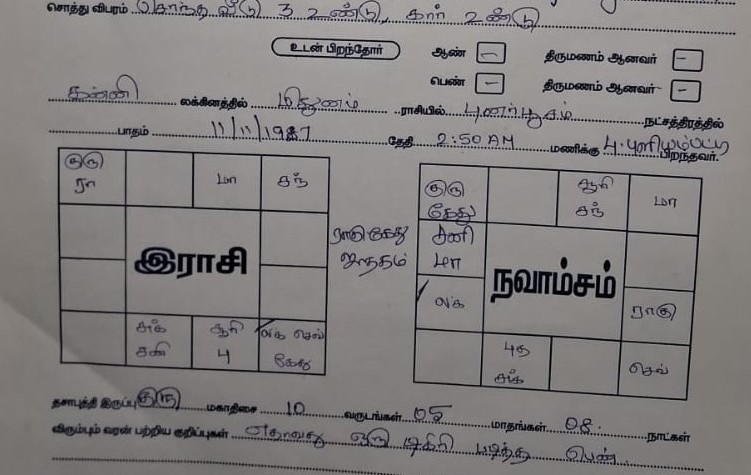 சொத்து விபரம் சொந்த வீடு 3 உண்டு, கார் உண்டு
உடன் பிறந்தோர் ஆண் – திருமணம் ஆனவர் –
பெண் – திருமணம் ஆனவர் –
கன்னி லக்கினத்தில் மிதுனம் ராசியில் புனர்பூசம் நட்சத்திரத்தில்
பாதம் 11/11/1987 தேதி 2:50 AM மணிக்கு 4.புளியம்பட்டி பிறந்தவர்.
குரு ரா மா சந்
இராசி
சுக் சனி சூரி 4 லக் செவ் கேது
ராகு கேது ஜாதகம்
குரு கேது சூரி சந் மா
சனி மா
நவாம்சம்
லக் ராகு
புத சுக் செவ்
தசாபுத்தி இருப்பு குரு மகாதிசை 10 வருடங்கள் 05 மாதங்கள் 08. நாட்கள்
விரும்பும் வரன் பற்றிய குறிப்புகள் ஏதாவது ஒரு டிகிரி படித்த பெண்